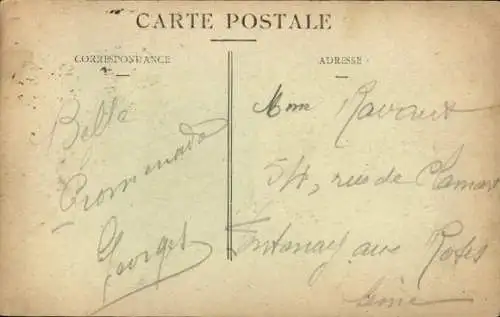 CARTE POSTALE
CORRESPONDANCE
ADRESSE
Belle
Promenade
Georges
Mme Ravaux
54, rue de Clamart
Fontenay aux Roses
Seine